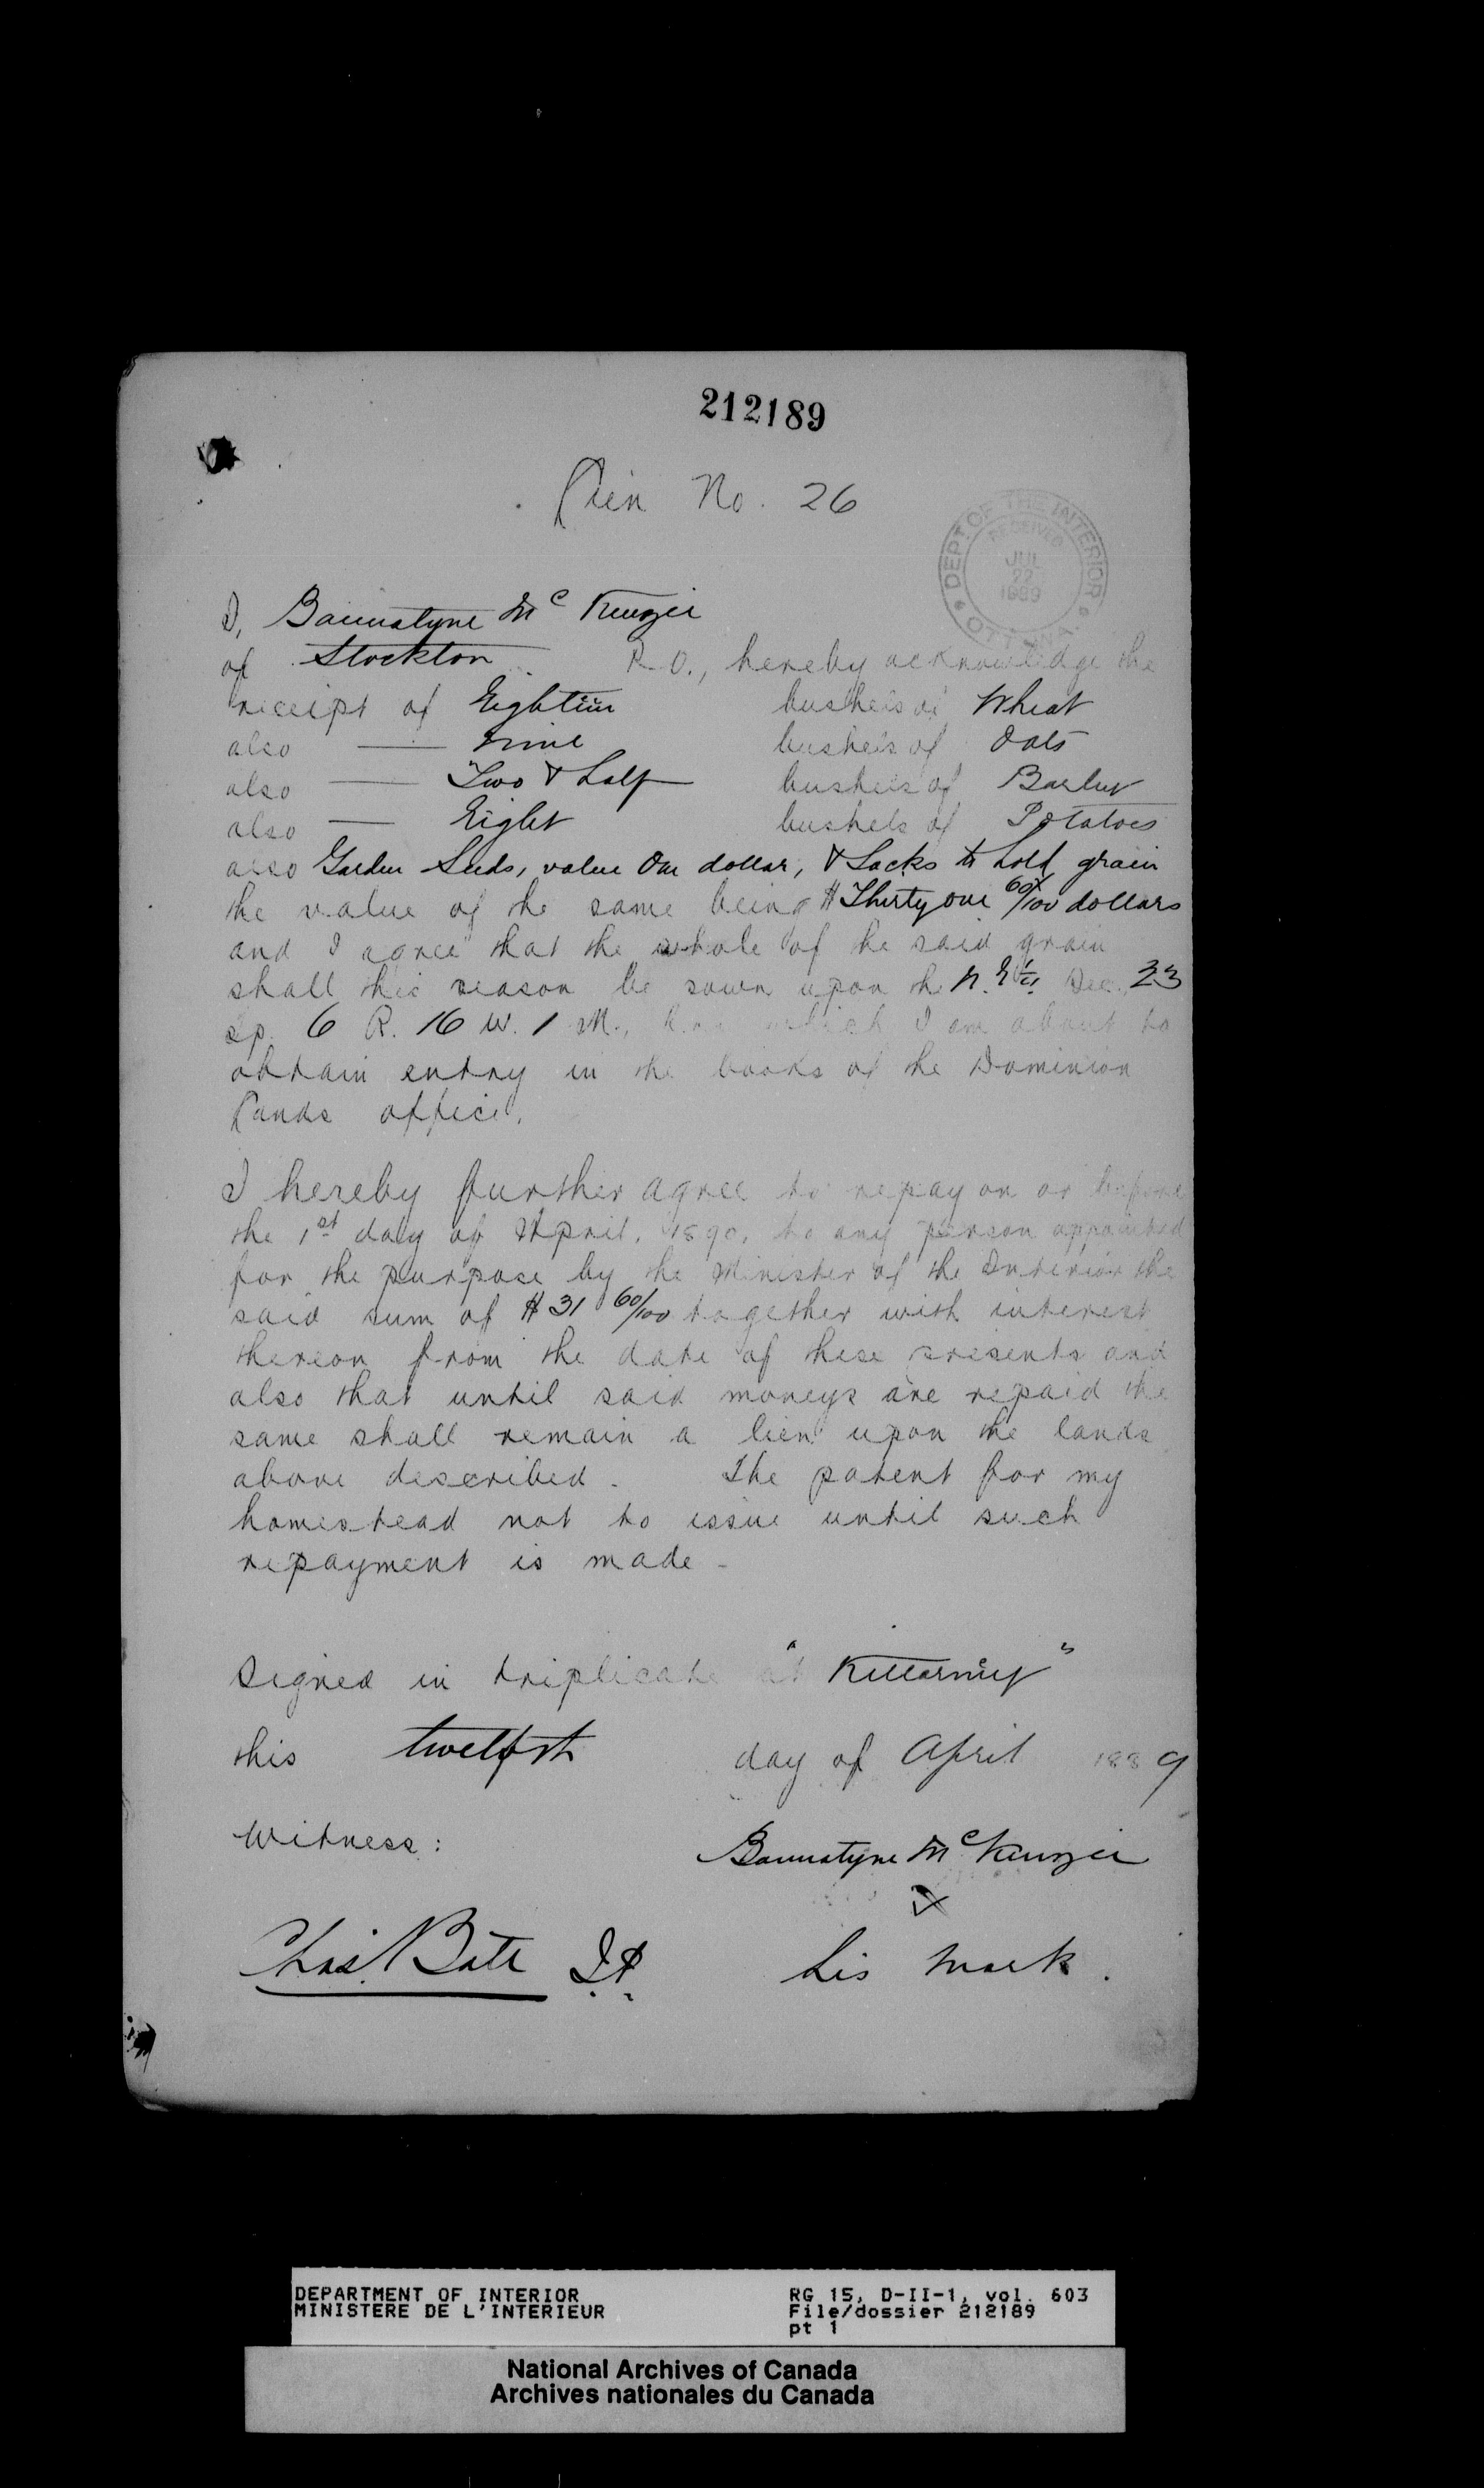 212189
Lien No. 26
DEPT OF THE INTERIOR
RECEIVED
JUL
22
1889
OTTAWA
I, Bannatyne McKenzie
of Stockton P.O., hereby acknowledge the
receipt of Eighteen bushels of Wheat
also — Nine bushels of Oats
also — Two & half bushels of Barley
also — Eight bushels of Potatoes
also Garden Seeds, value One dollar, & Sacks to hold grain
the value of the same being $ Thirty one 60/100 dollars
and I agree that the whole of the said grain
shall this season be sown upon the N. E 1/4 Sec. 23
Tp. 6 R. 16 W. 1 M., which I am about to
obtain entry in the books of the Dominion
Lands office.
I hereby further agree to repay on or before
the 1st day of April, 1890, to any person appointed
for the purpose by the Minister of the Interior the
said sum of $ 31 60/100 together with interest
thereon from the date of these presents and
also that until said moneys are repaid the
same shall remain a lien upon the lands
above described. The patent for my
homestead not to issue until such
repayment is made -
Signed in triplicate at "Killarney"
this twelfth day of April 1889
Witness:
Bannatyne McKenzie
X
Chas. Bate
his mark.
DEPARTMENT OF INTERIOR RG 15, D-II-1, vol. 603
MINISTERE DE L'INTERIEUR File/dossier 212189
pt 1
National Archives of Canada
Archives nationales du Canada